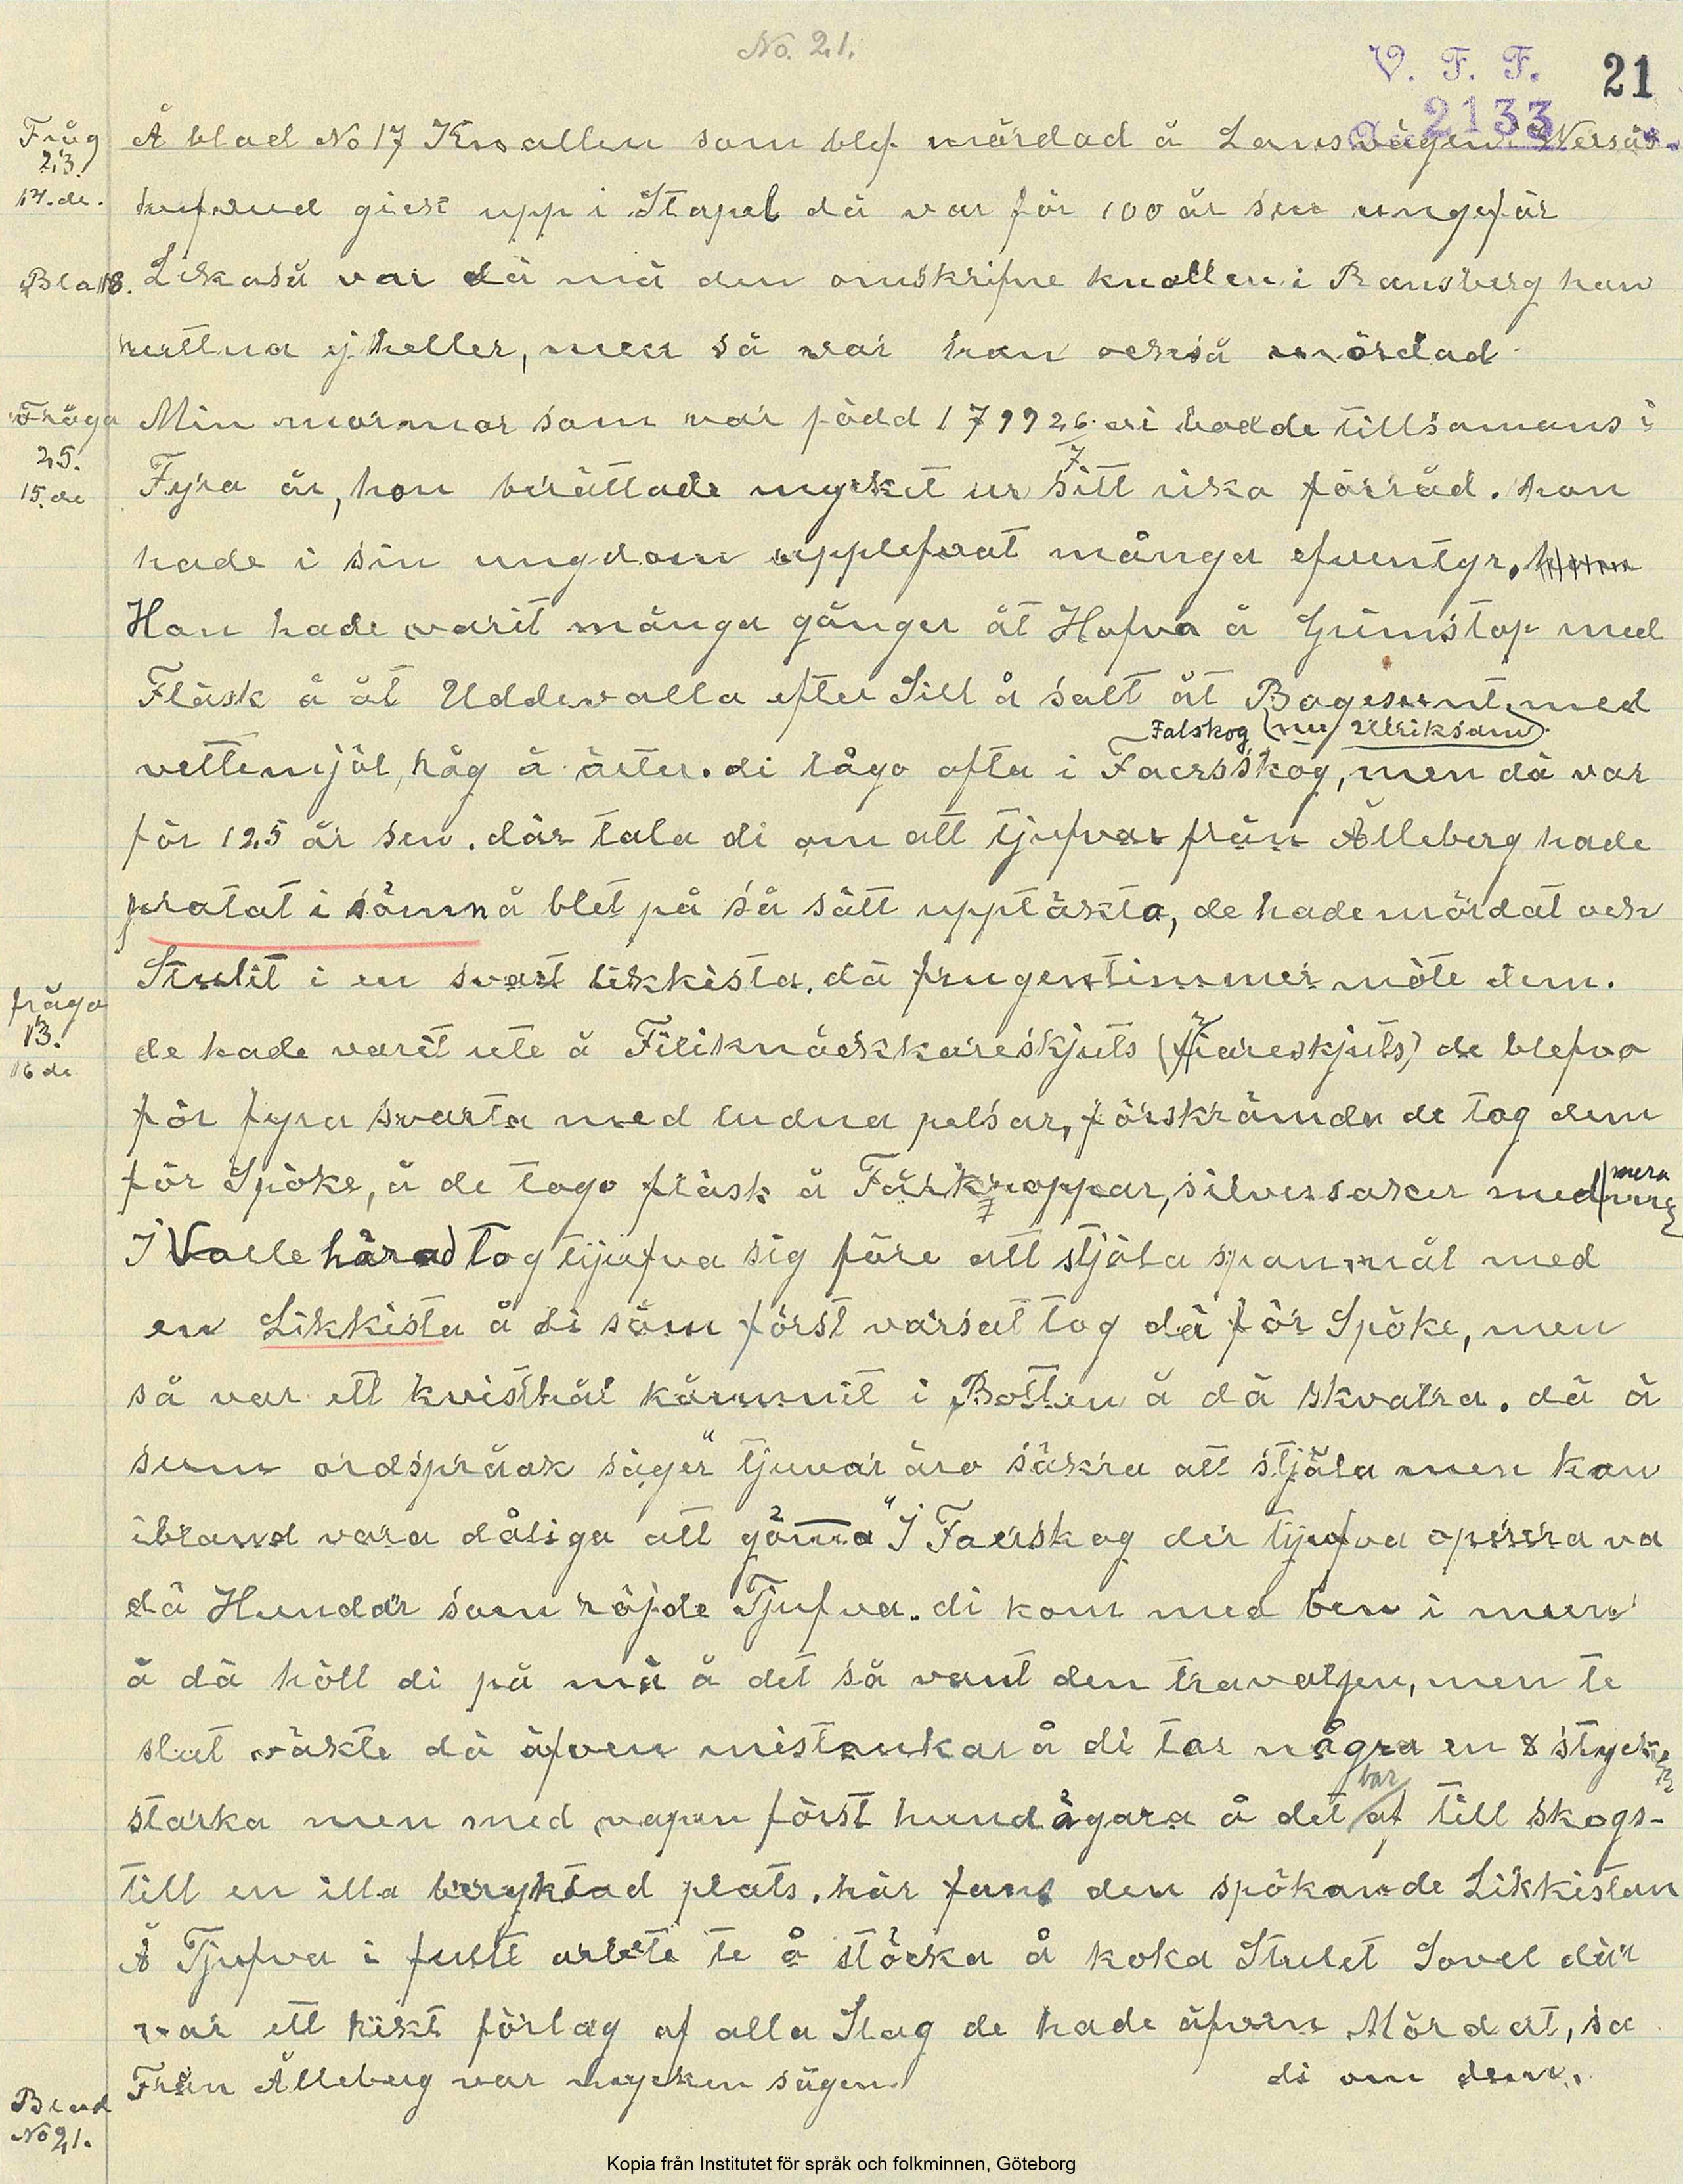 No. 21.
V. F. F. 21
2133
Fråg 23. 17.de. Å blad No 17 Knallen som blef mördad å Lansvägen Wersås-
hufvud gick upp i Stapel dä var för 100 år sen ungefär
Blad 18. Likaså var dä mä den omskrifne knallen i Ransberg han
ruttna ej heller, men så var han också mördad
Fråga 25. 15.de Min mormor som var född 1799 26/7 vi bodde tillsamans i
Fyra år, hon berättade mycket ur sitt rika förråd. hon
hade i sin ungdom upplefvat många efventyr.
Hon hade varit många gånger åt Hofva å Grimstop med
Fläsk å åt Uddevalla efter Sill å salt åt Bogesunt med
Falskog (nu Ulriksam)
vettemjöl, håg å ärter. di lågo ofta i Faersskog, men dä var
för 125 år sen. där tala di om att tjufvar från Ålleberg hade
pratat i sömn å blet på så sätt upptäckta, de hade mördat och
Stulit i en svart likkista. dä frugentimmer möte dem.
fråga 13. 16 de de hade varit ute å Filiknäckkareskjuts (fiareskjuts) de blefvo
för fyra svarta med ludna pelsar, förskrämda de tog dem
för Spöke, å de togo fläsk å Fårkroppar, silversaker med mera
I Valle härad tog tjufva sig före att stjäla spannmål med
en Likkista å di som först varsat tog dä för Spöke, men
så var ett kvisthål kåmmit i Botten å dä skvatra. dä ä
sum ordspråk säger "tjuvar äro säkra att stjäla men kan
ibland vara dåliga att gömma" I Faerskog der tjufva operera va
dä Hundar som röjde Tjufva. di kom med ben i mun
å dä höll di på mä å det så vant den travaljen, men te
slut väkte dä äfven mistankar å di tar några en 8 stycke
starka men med vapen först hundägara å det bar af till skogs-
till en illa beryktad plats. här fans den spökande Likkistan
Å Tjufva i fullt arbete te å stöcka å koka Stulet Sovel där
var ett rikt förlag af alla Slag de hade äfven Mördat, sa
di om dem.
Blad No 21. Från Ålleberg var mycken sägen.
Kopia från Institutet för språk och folkminnen, Göteborg